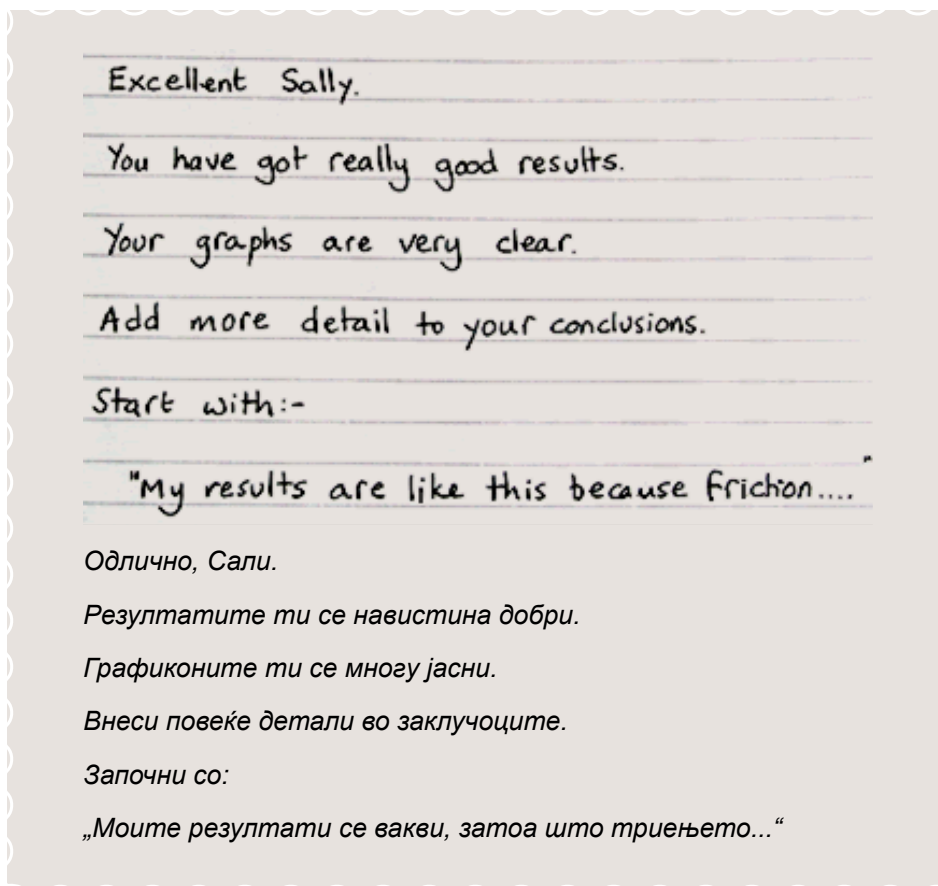 Excellent Sally.
You have got really good results.
Your graphs are very clear.
Add more detail to your conclusions.
Start with:-
"My results are like this because friction...."
Одлично, Сали.
Резултатите ти се навистина добри.
Графиконите ти се многу јасни.
Внеси повеќе детали во заклучоците.
Започни со:
„Моите резултати се вакви, затоа што триењето...“